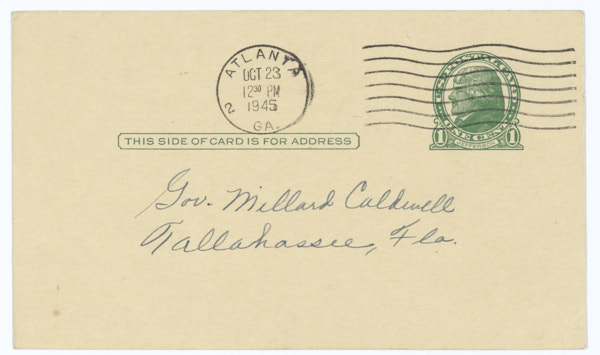 ATLANTA
OCT 23
12 30 PM
1945
2
GA.
U.S. POSTAGE
1 ONE CENT 1
JEFFERSON
THIS SIDE OF CARD IS FOR ADDRESS
Gov. Millard Caldwell
Tallahassee, Fla.